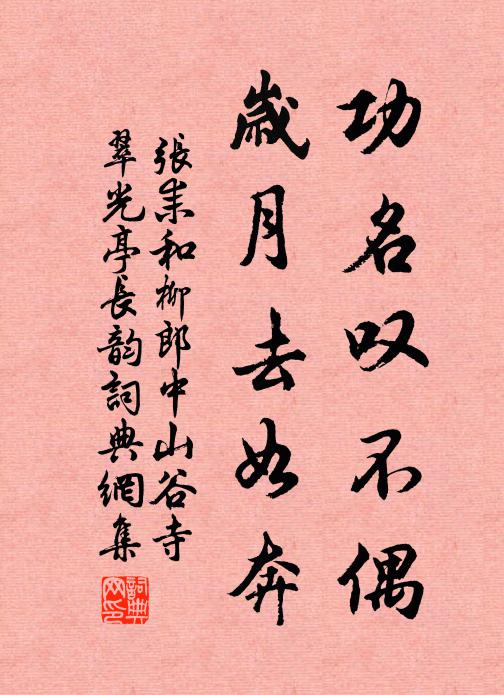 功名叹不偶
歲月去如奔
張耒和柳郎中山谷寺
翠光亭長韵詞典網集
詞典网印